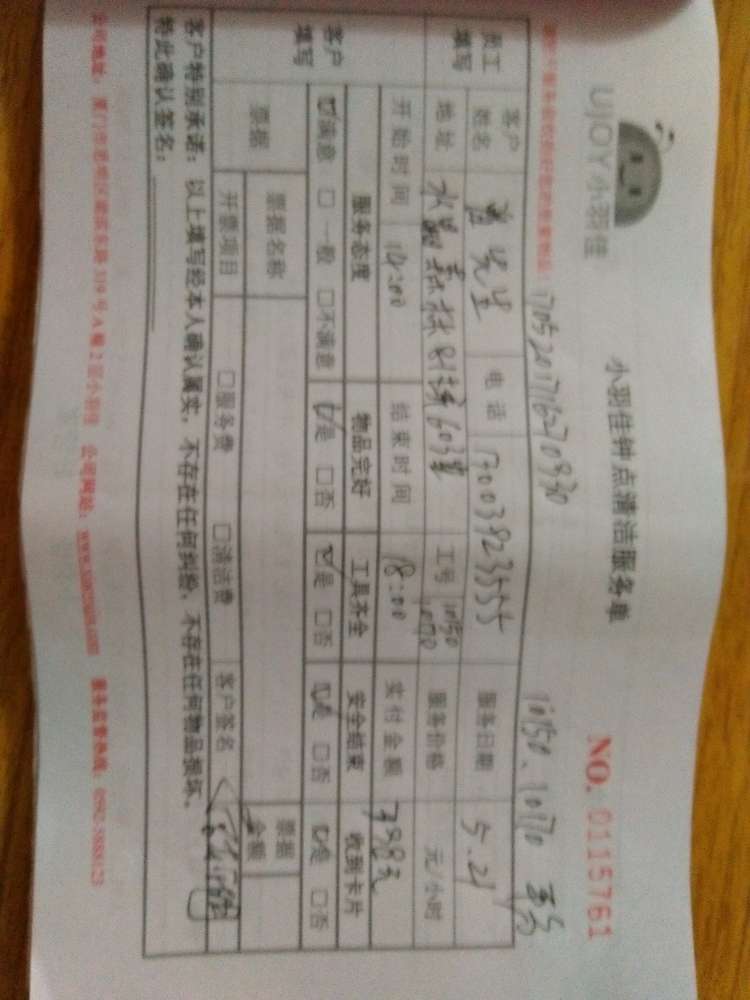 UJOY小羽佳
小羽佳钟点清洁服务单
NO. 0115761
10150、10170
员工填写 客户姓名 先生 电话 服务日期 5.21
地址 水晶森林 603室 工号 10150 10170 服务价格 元/小时
客户填写 开始时间 14:00 结束时间 18:00 实付金额 398元
服务态度 物品完好 工具齐全 安全结束 收到卡片
☑满意 □一般 □不满意 ☑是 □否 ☑是 □否 ☑是 □否 ☑是 □否
票据 票据名称 票据金额
开票项目 □服务费 □清洁费 客户签名
客户特别承诺：以上填写经本人确认属实，不存在任何纠纷，不存在任何物品损坏。
特此确认签名：
公司地址：厦门市思明区 319号A幢2层小羽佳 公司网站： 服务监督热线：0592-5888123